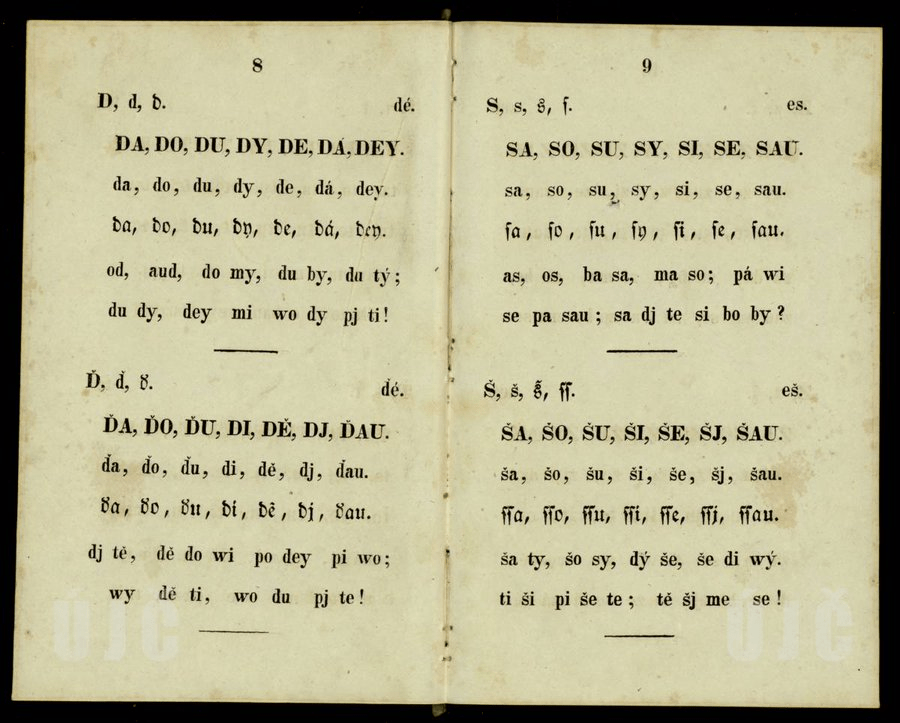 8
D, d, d. dé.
DA, DO, DU, DY, DE, DÁ, DEY.
da, do, du, dy, de, dá, dey.
da, do, du, dy, de, dá, dey.
od, aud, do my, du by, du tý;
du dy, dey mi wo dy pj ti!
Ď, ď, ď. ďé.
ĎA, ĎO, ĎU, DI, DĚ, DJ, ĎAU.
ďa, ďo, ďu, di, dě, dj, ďau.
ďa, ďo, ďu, di, dě, dj, ďau.
dj tě, dě do wi po dey pi wo;
wy dě ti, wo du pj te!
9
S, s, ſ. es.
SA, SO, SU, SY, SI, SE, SAU.
sa, so, su, sy, si, se, sau.
ſa, ſo, ſu, ſy, ſi, ſe, ſau.
as, os, ba sa, ma so; pá wi
se pa sau; sa dj te si bo by?
Š, š, ſſ. eš.
ŠA, ŠO, ŠU, ŠI, ŠE, ŠJ, ŠAU.
ša, šo, šu, ši, še, šj, šau.
ſſa, ſſo, ſſu, ſſi, ſſe, ſſj, ſſau.
ša ty, šo sy, dý še, še di wý.
ti ši pi še te; tě šj me se!
ÚJČ ÚJČ